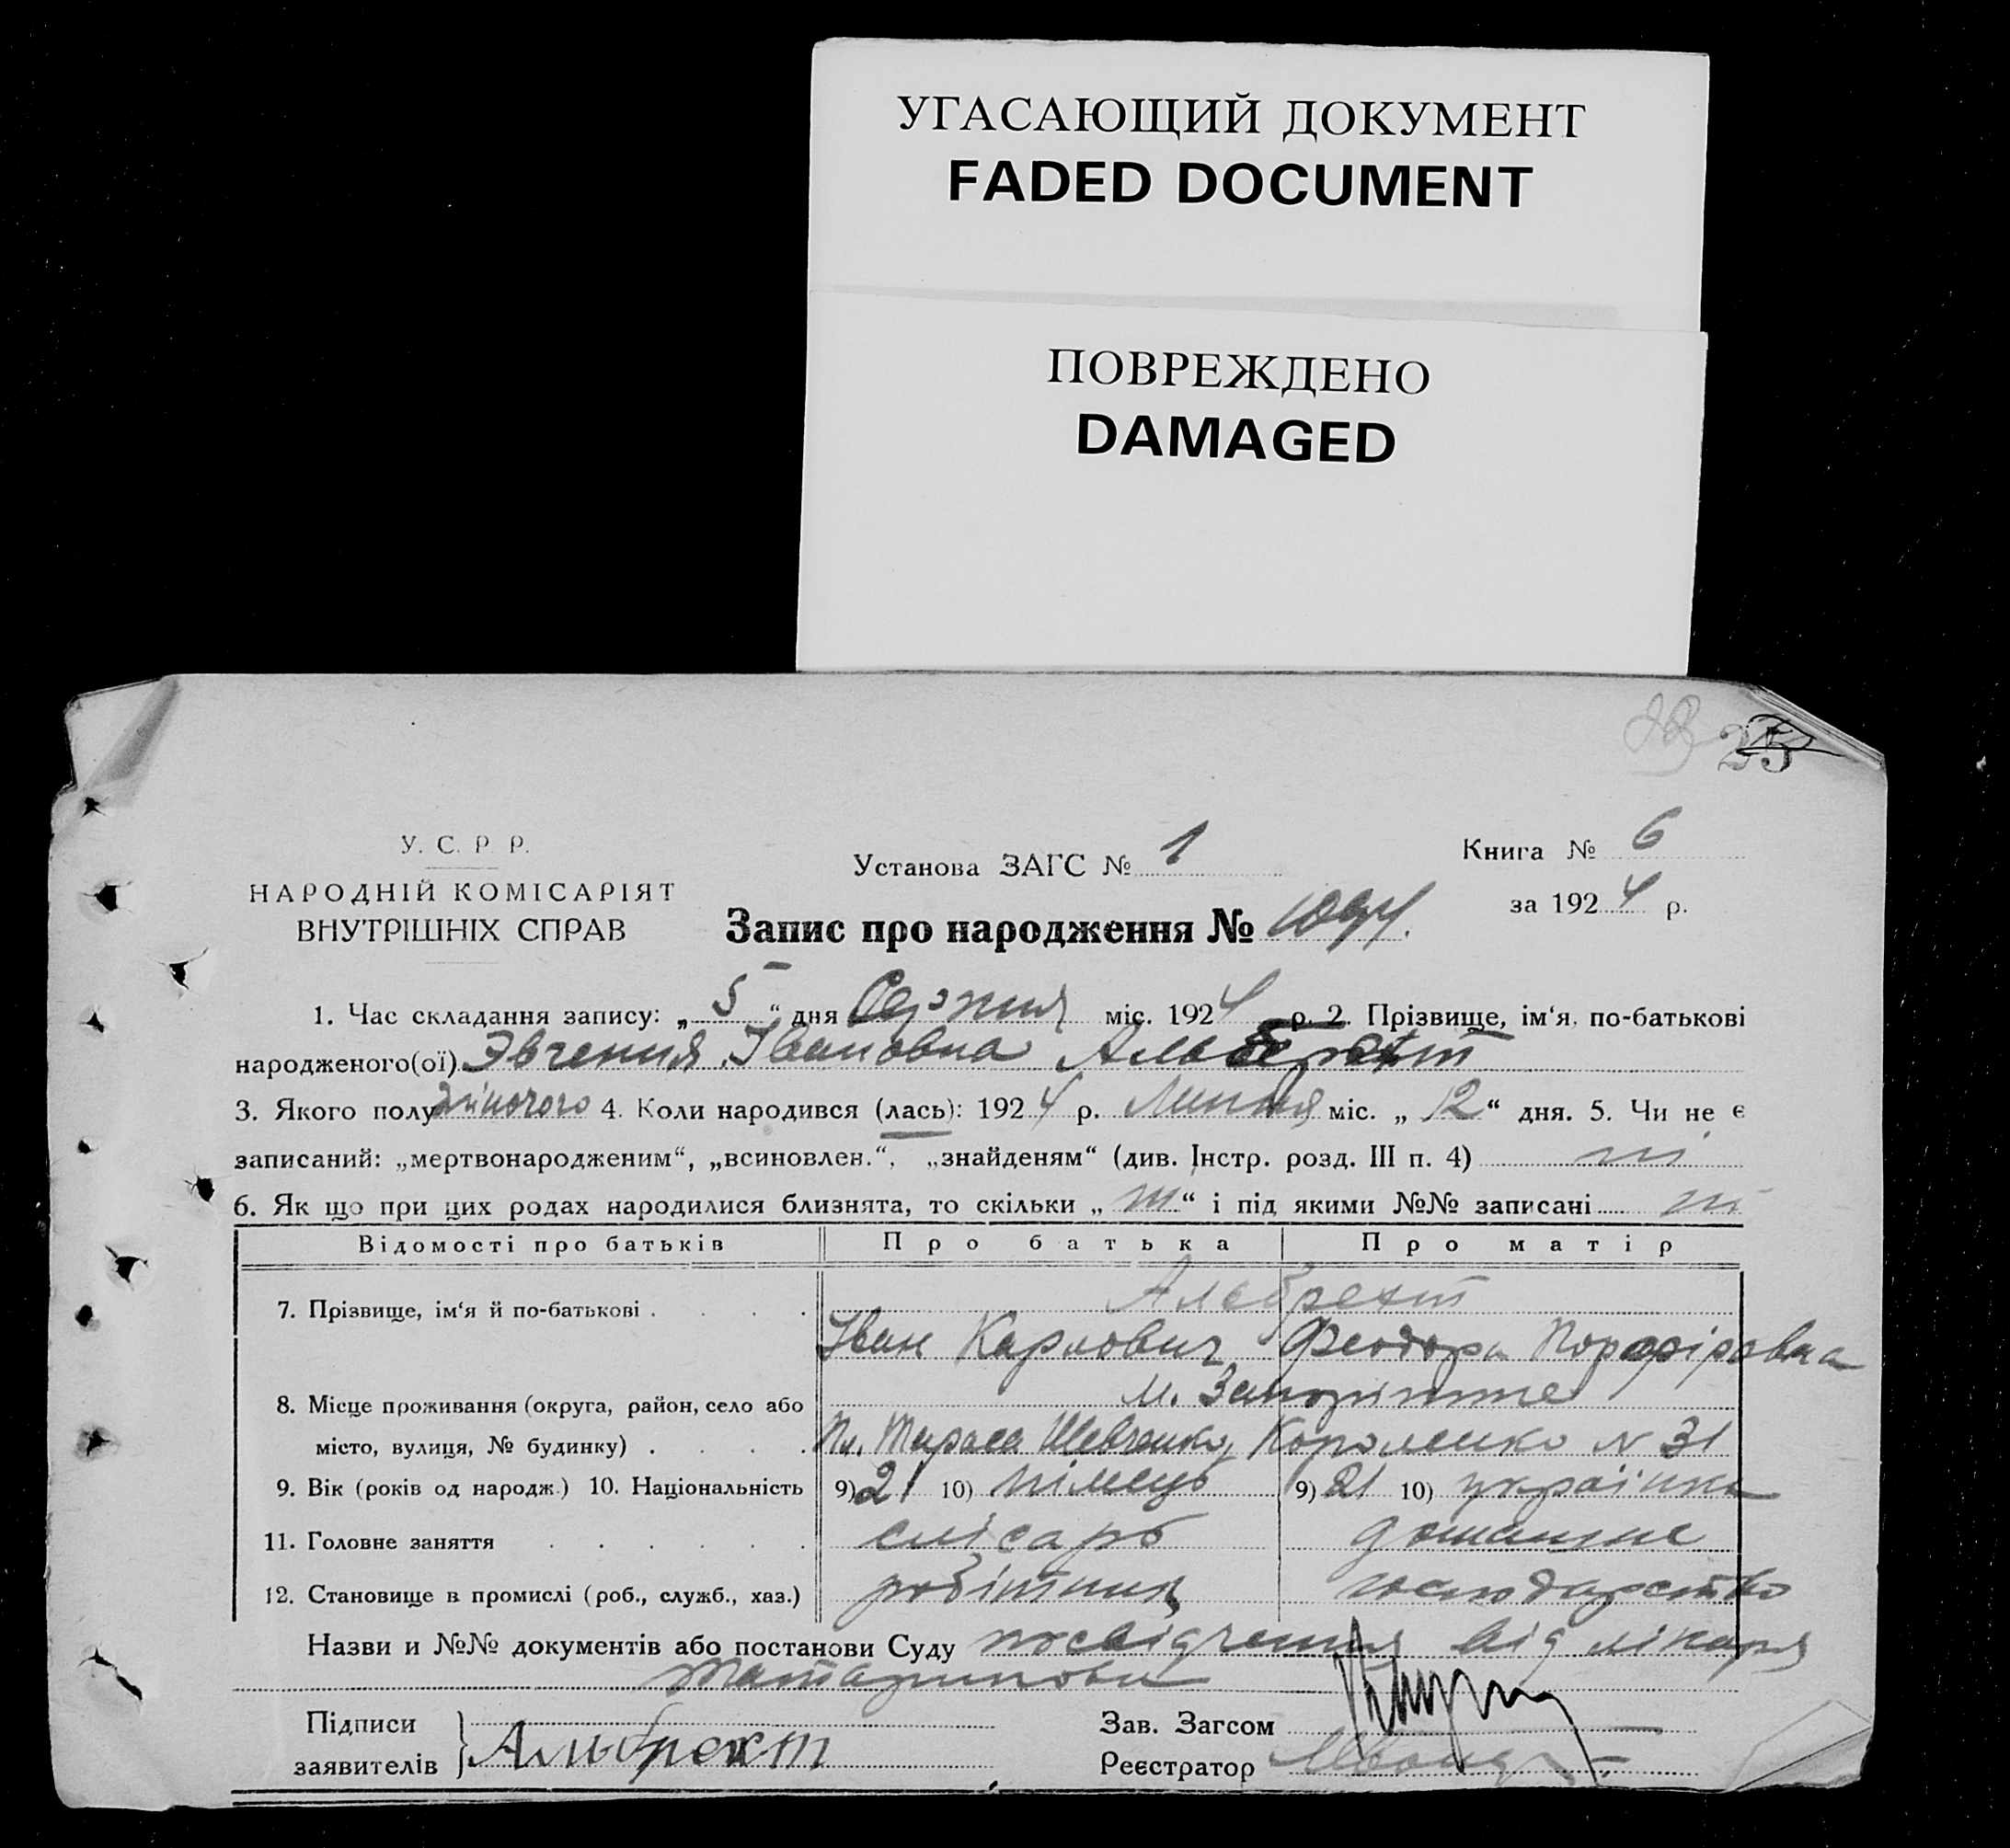 УГАСАЮЩИЙ ДОКУМЕНТ
FADED DOCUMENT
ПОВРЕЖДЕНО
DAMAGED
25
У. С. Р. Р.
НАРОДНІЙ КОМІСАРІЯТ
ВНУТРІШНІХ СПРАВ
Установа ЗАГС № 1
Книга № 6
за 1924 р.
Запис про народження №
1. Час складання запису: „5“ дня Серпня міс. 1924 р. 2. Прізвище, ім‘я, по-батькові
народженого(ої) Эвгения Івановна Альбрехт
3. Якого полу жіночого 4. Коли народився (лась): 1924 р. Липня міс. „12“ дня. 5. Чи не є
записаний: „мертвонародженим“, „всиновлен.“, „знайденям“ (див. Інстр. розд. III п. 4) ні
6. Як що при цих родах народилися близнята, то скільки „ “ і під якими №№ записані
Відомості про батьків Про батька Про матір
7. Прізвище, ім‘я й по-батькові . . . . Альбрехт
Іван Карлович Феодора Порфірівна
8. Місце проживання (округа, район, село або м. Запоріжжє
місто, вулиця, № будинку) . . . . Пл. Тараса Шевченко, Короленко N 31
9. Вік (років од народж.) 10. Національність 9) 21 10) німець 9) 21 10) українка
11. Головне заняття . . . . . . слісарь домашнє
12. Становище в промислі (роб., служб., хаз.) робітник господарство
Назви и №№ документів або постанови Суду посвідчення від лікаря
Підписи
заявителів } Альбрехт
Зав. Загсом
Реєстратор